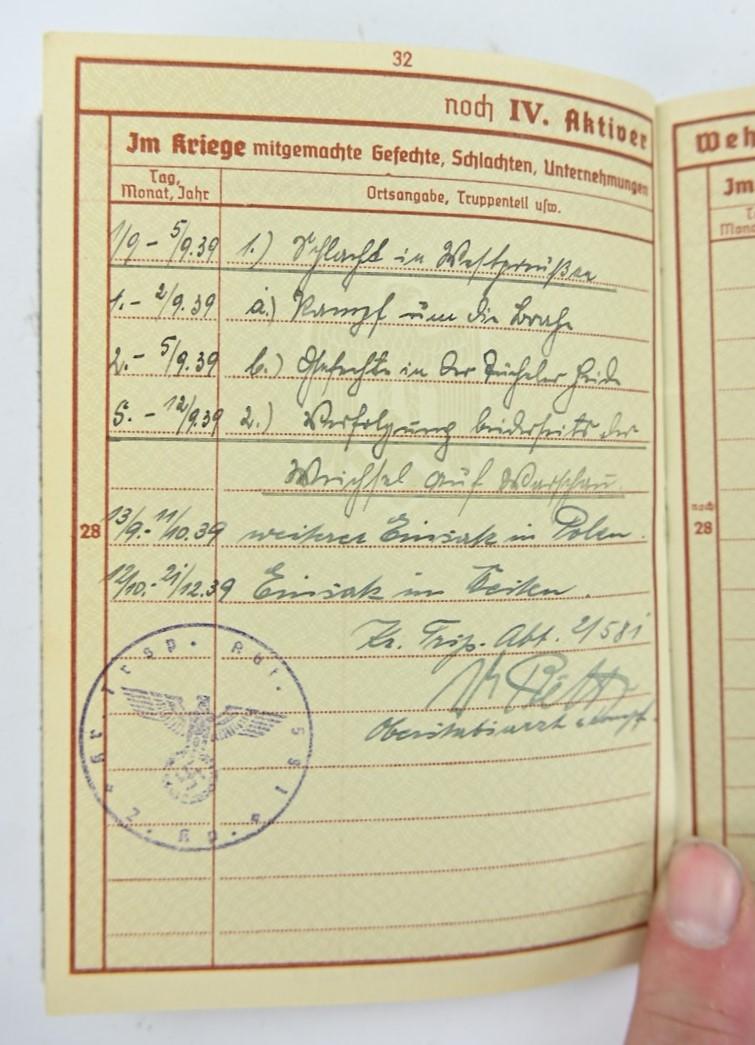 32
noch IV. Aktiver
Im Kriege mitgemachte Gefechte, Schlachten, Unternehmungen
Tag,
Monat, Jahr
Ortsangabe, Truppenteil usw.
1/9 - 5/9.39 1.) Schlacht in Westpreußen
1. - 2/9.39 a.) Kampf um die Brahe
2. - 5/9.39 b.) Gefechte in der Tucheler Heide
5. - 12/9.39 2.) Verfolgung beiderseits der
Weichsel auf Warschau.
28 13/9. - 11/10.39 weiterer Einsatz in Polen.
12/10. - 21/12.39 Einsatz im Westen.
Kr. Trsp. Abt. 2/581
Oberstabsarzt
Kr. Trsp. Abt. 581 * 2. Kp. *
Weh
Im
noch
28